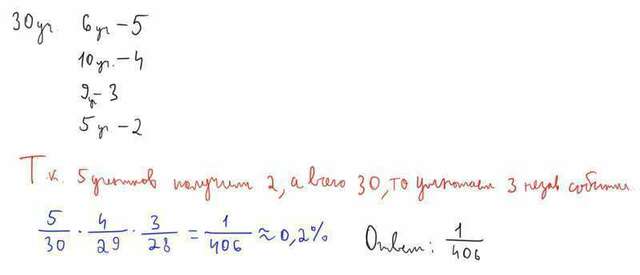 30 уч. 6 уч - 5
10 уч. - 4
9 уч - 3
5 уч - 2
Т.к. 5 учеников получили 2, а всего 30, то умножаем 3 незав события
5/30 · 4/29 · 3/28 = 1/406 ≈ 0,2% Ответ: 1/406